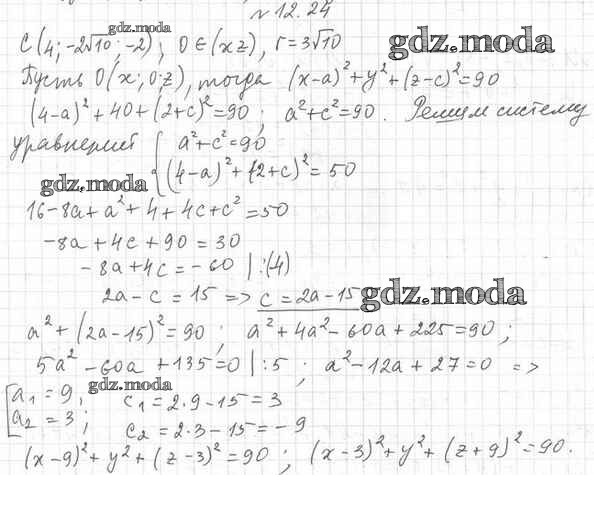 № 12.24
C(4; -2√10; -2); O∈(xz), r=3√10
gdz.moda
Пусть O(x; 0; z), тогда (x-a)²+y²+(z-c)²=90
(4-a)²+40+(2+c)²=90; a²+c²=90. Решим систему
уравнений { a²+c²=90
(4-a)²+(2+c)²=50
gdz.moda
16-8a+a²+4+4c+c²=50
-8a+4c+90=30
-8a+4c=-60 |:(4)
2a-c=15 => c=2a-15
gdz.moda
a²+(2a-15)²=90; a²+4a²-60a+225=90;
5a²-60a+135=0 |:5; a²-12a+27=0 =>
gdz.moda
[ a₁=9, c₁=2·9-15=3
a₂=3; c₂=2·3-15=-9
(x-9)²+y²+(z-3)²=90; (x-3)²+y²+(z+9)²=90.